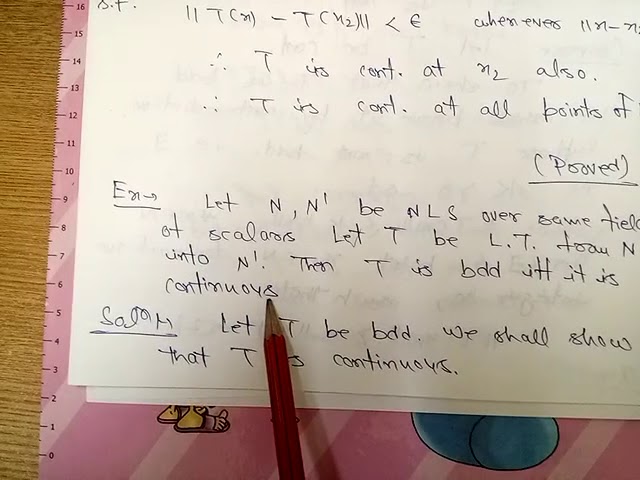 S.t.
|| T(x) - T(x2)|| < ε whenever ||x-x2
∴ T is cont. at x2 also.
∴ T is cont. at all points of
(Proved)
Ex→ Let N, N' be NLS over same field
of scalars Let T be L.T. from N
into N'. Then T is bdd iff it is
continuous
Sol^n→ Let T be bdd. We shall show
that T is continuous.
16
15
14
13
12
11
10
9
8
7
6
5
4
3
2
1
0